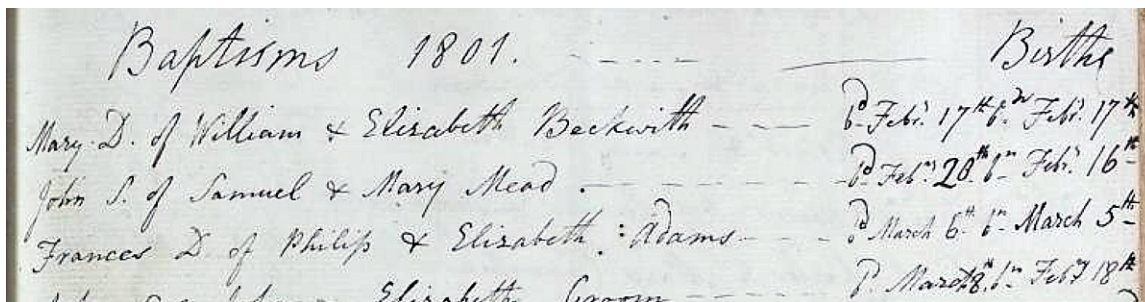 Baptisms 1801. Births
Mary D. of William & Elizabeth Beckwith bd Febr. 17th bn Febr. 17th
John S. of Samuel & Mary Mead. bd Febr. 20th bn Febr. 16th
Frances D. of Philip & Elizabeth : Adams bd March 6th bn March 5th
Elizabeth Groom bd March 8th bn Febr 18th